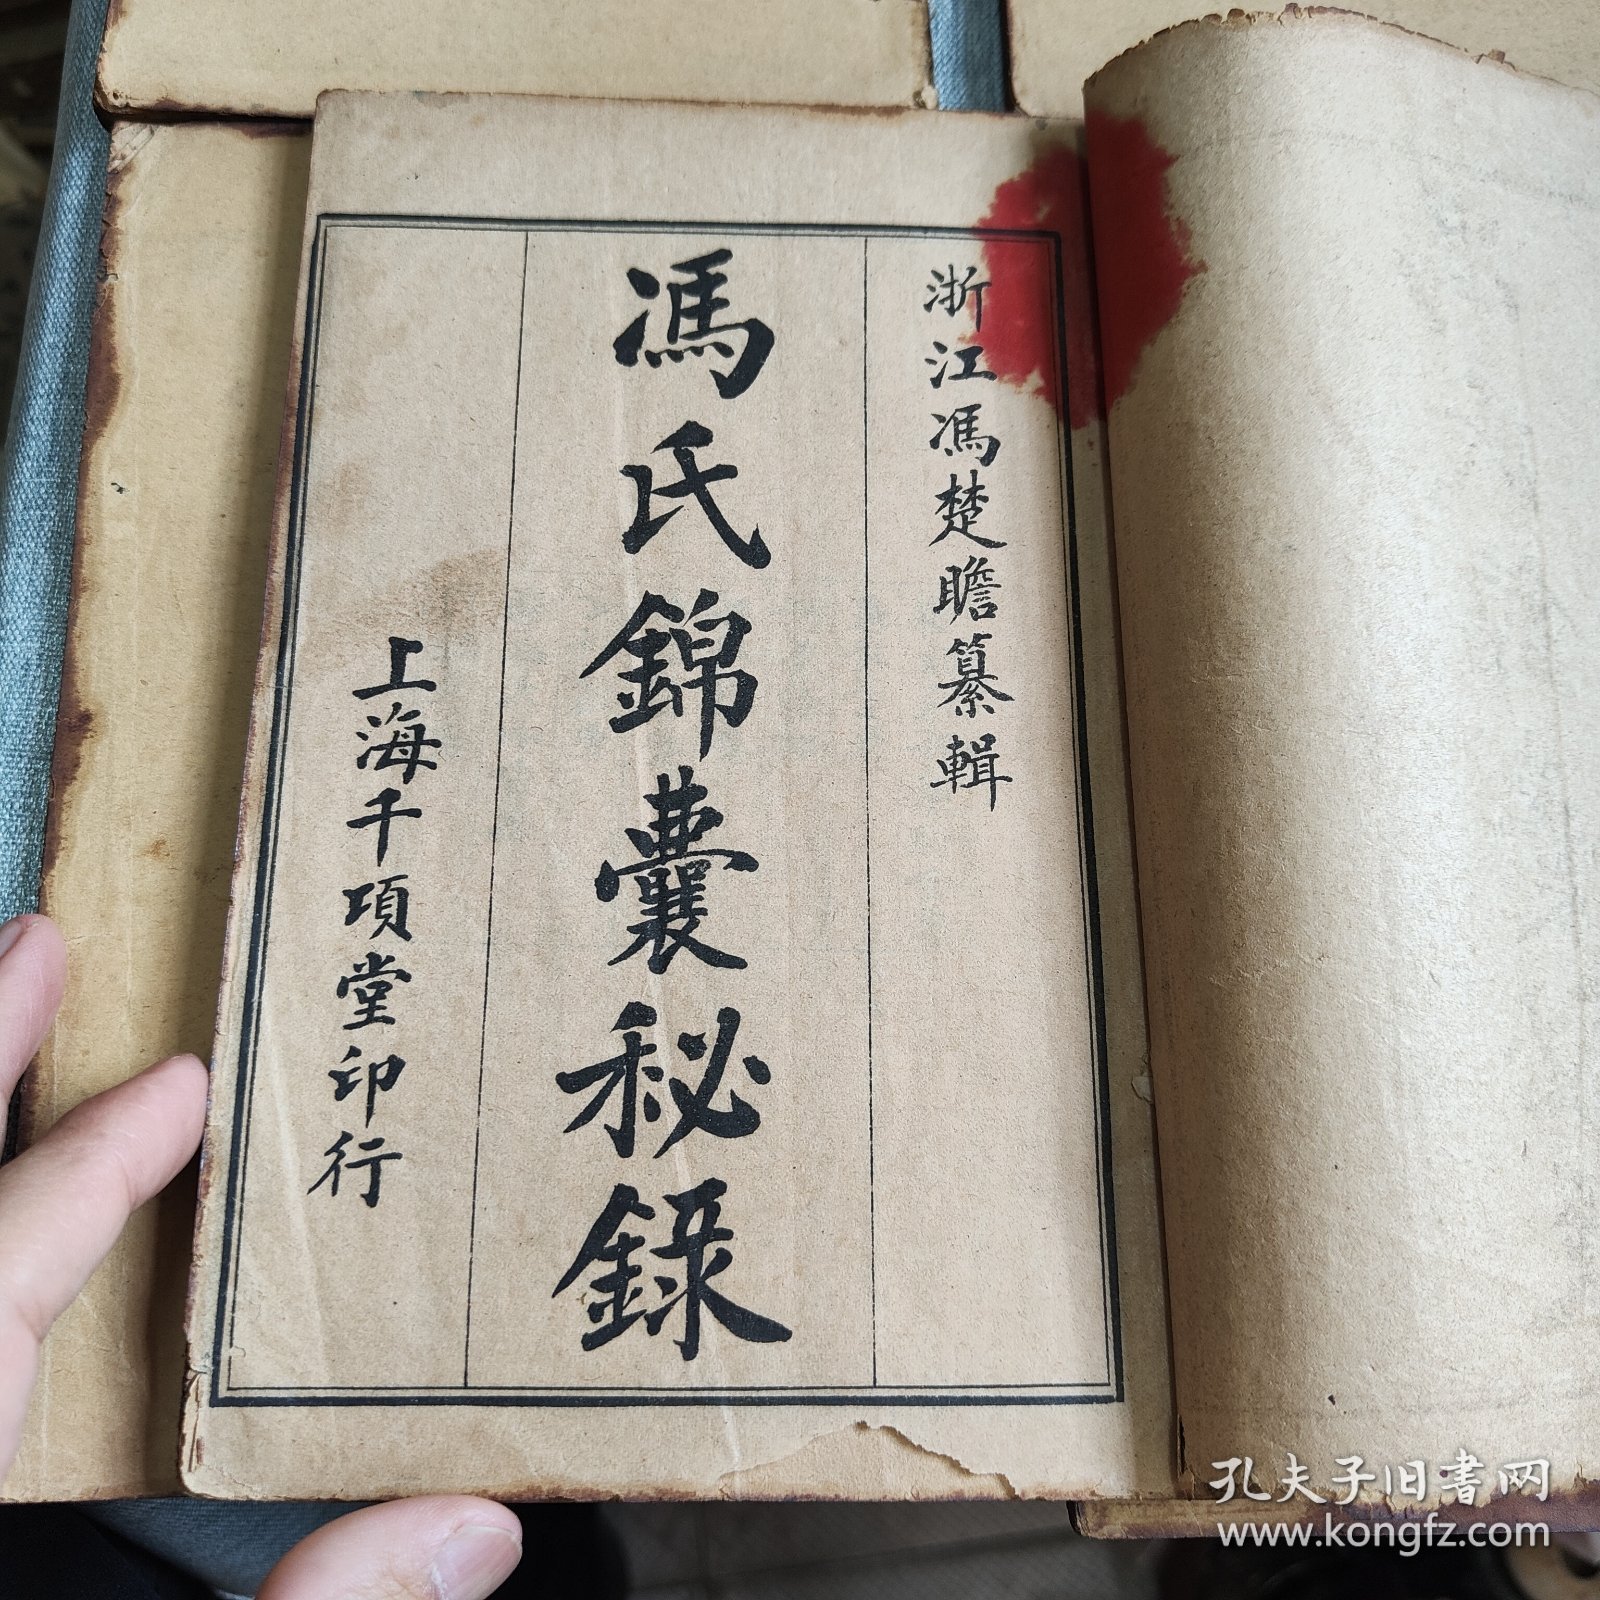 浙江馮楚瞻纂輯
馮氏錦囊秘錄
上海千頃堂印行
孔夫子旧书网
www.kongfz.com